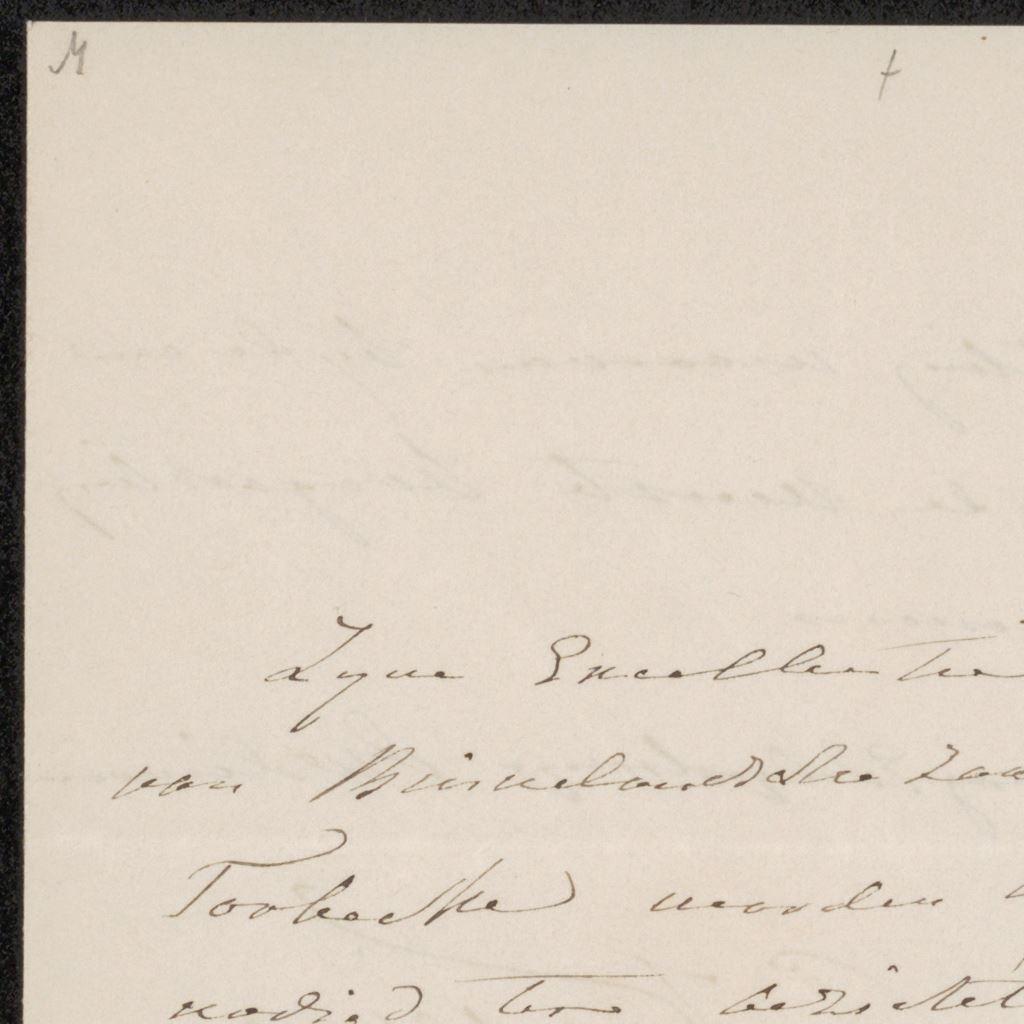 M +
Zyne Excellentie
van Binnelandsche Zaa
Torbecke worden
nodigd ter bezichti